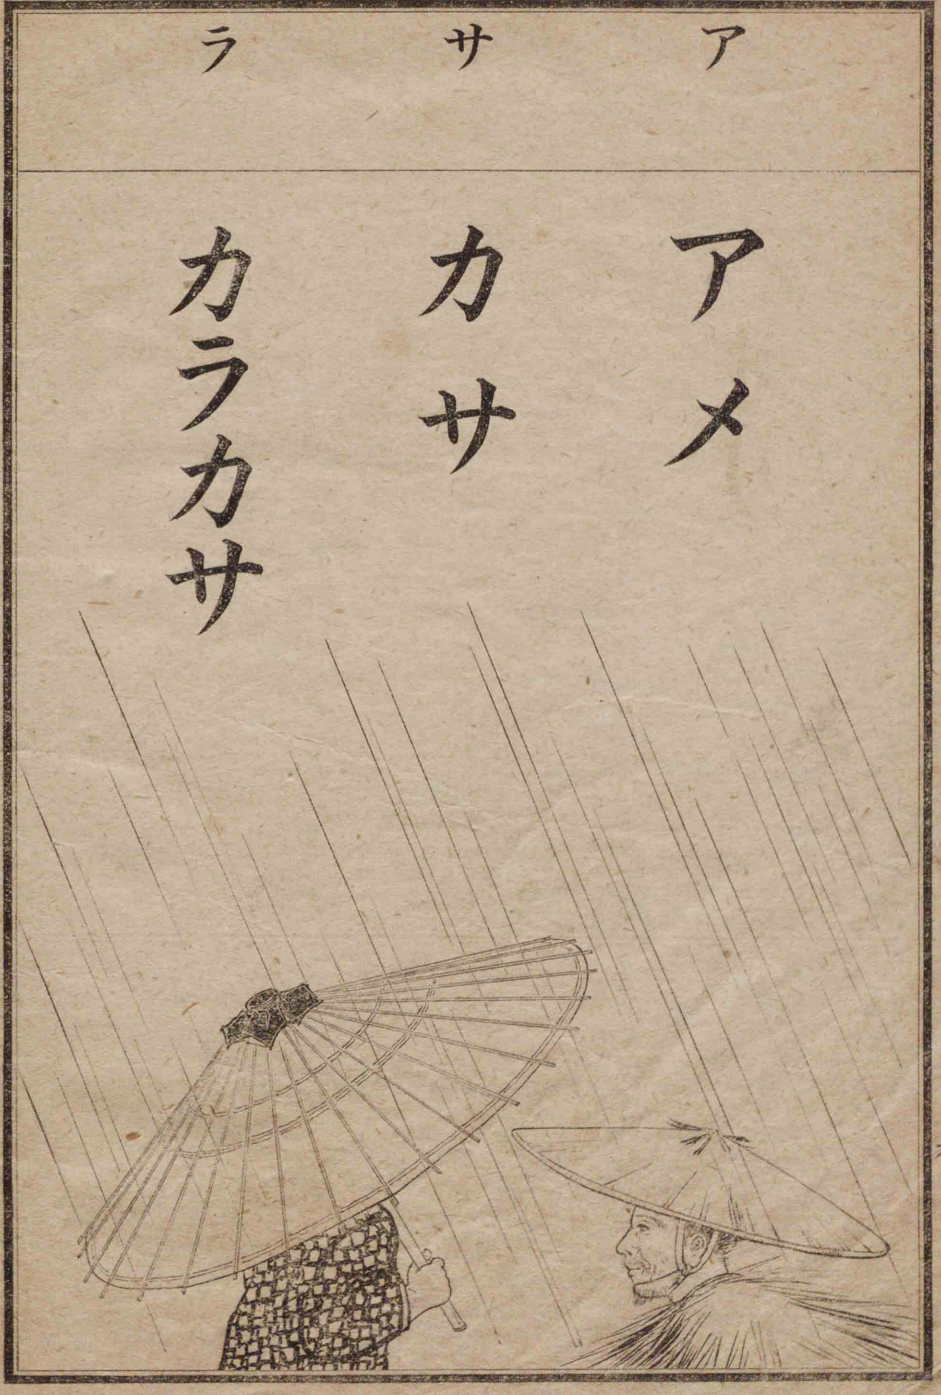 ア
サ
ラ
アメ
カサ
カラカサ